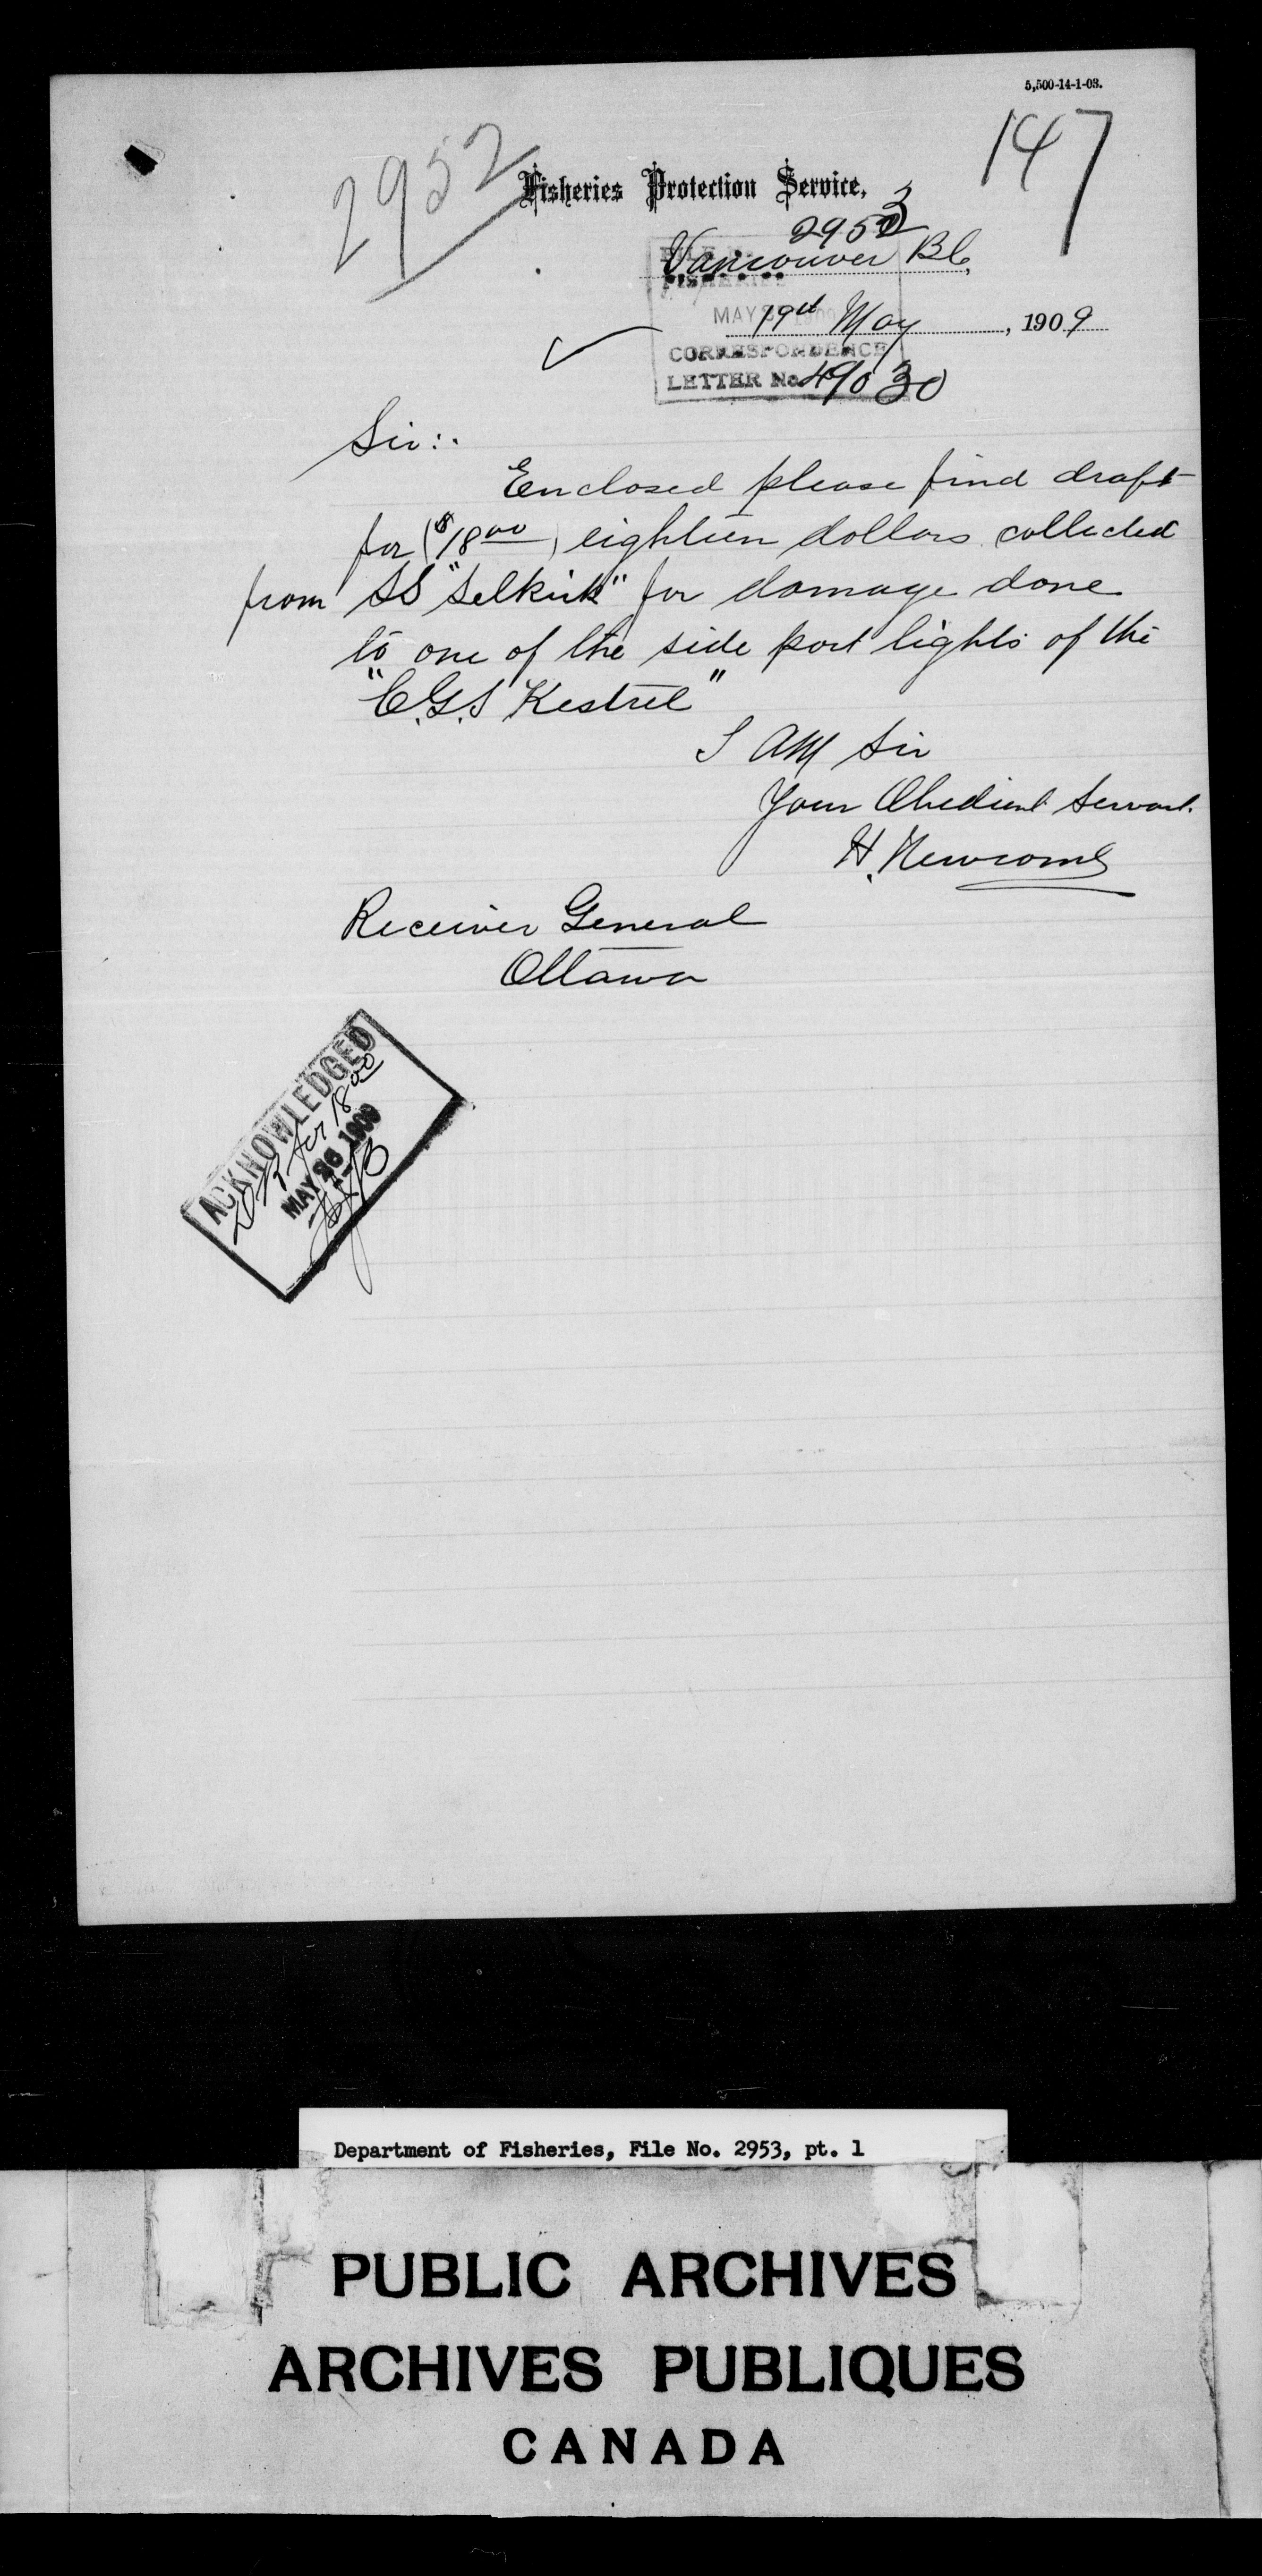 5,500-14-1-08.
147
2952
Fisheries Protection Service.
2953
Vancouver BC.
19th May, 1909
MAY
CORRESPONDENCE
LETTER No. 49030
Sir:.
Enclosed please find draft
for ($18 00) eighteen dollars collected
from SS "Selkirk" for damage done
to one of the side port lights of the
"C.G.S Kestrel"
I am Sir
Your Obedient Servant.
H. Newcomb
Receiver General
Ottawa
ACKNOWLEDGED
for 18 00
MAY 26 1909
Department of Fisheries, File No. 2953, pt. 1
PUBLIC ARCHIVES
ARCHIVES PUBLIQUES
CANADA